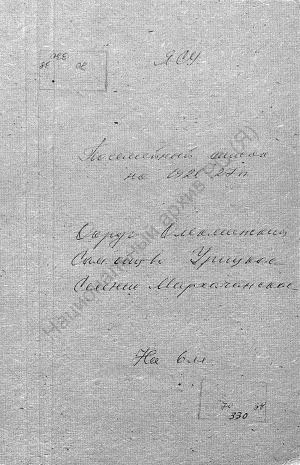 ЯСУ
Посемейный список
на 1926-27 гг
Округ Олекминский
Сельство Урицкое
Селение Мархачанское
На 6 л
330
Национальный архив РС(Я)